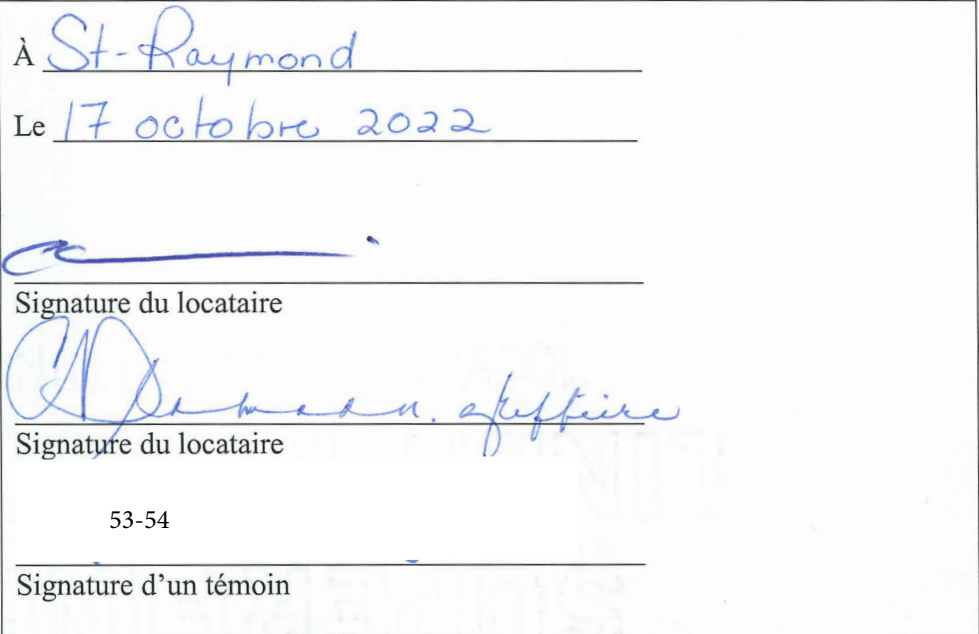 À St-Raymond
Le 17 octobre 2022
Signature du locataire
greffière
Signature du locataire
53-54
Signature d'un témoin